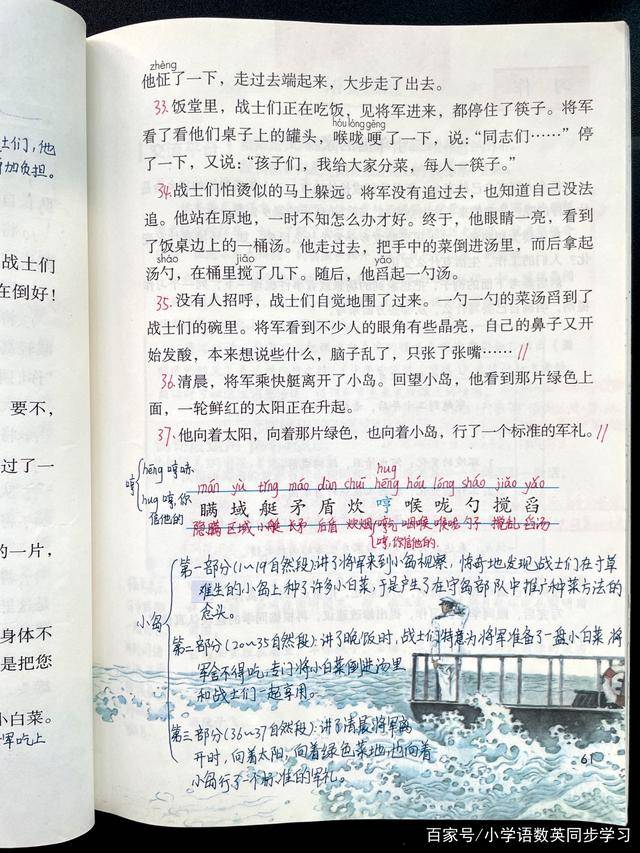 士们，他
加负担。
战士们
在倒好！
要不，
过了一
的一片，
身体不
是把您
小白菜。
军吃上
zhèng
他怔了一下，走过去端起来，大步走了出去。
33.饭堂里，战士们正在吃饭，见将军进来，都停住了筷子。将军
hóu lóng gěng
看了看他们桌子上的罐头，喉咙哽了一下，说：“同志们……”停
了一下，又说：“孩子们，我给大家分菜，每人一筷子。”
34.战士们怕烫似的马上躲远。将军没有追过去，也知道自己没法
追。他站在原地，一时不知怎么办才好。终于，他眼睛一亮，看到
了饭桌边上的一桶汤。他走过去，把手中的菜倒进汤里，而后拿起
sháo jiǎo yǎo
汤勺，在桶里搅了几下。随后，他舀起一勺汤。
35.没有人招呼，战士们自觉地围了过来。一勺一勺的菜汤舀到了
战士们的碗里。将军看到不少人的眼角有些晶亮，自己的鼻子又开
始发酸，本来想说些什么，脑子乱了，只张了张嘴……//
36.清晨，将军乘快艇离开了小岛。回望小岛，他看到那片绿色上
面，一轮鲜红的太阳正在升起。
37.他向着太阳，向着那片绿色，也向着小岛，行了一个标准的军礼。//
哼 hēng 哼哧
hng 哼，你信他的
hng
mán yù tǐng máo dùn chuī hēng hóu lóng sháo jiǎo yǎo
瞒 域 艇 矛 盾 炊 哼 喉 咙 勺 搅 舀
隐瞒 区域 小艇 长矛 后盾 炊烟 咽喉 喉咙 勺子 搅乱 舀汤
哼，你信他的。
小岛
第一部分（1~19自然段）：讲了将军来到小岛视察，惊奇地发现战士们在寸草
难生的小岛上种了许多小白菜，于是产生了在守岛部队中推广种菜方法的
念头。
第二部分（20~35自然段）：讲了晚饭时，战士们特意为将军准备了一盘小白菜，将
军舍不得吃，专门将小白菜倒进汤里
和战士们一起享用。
第三部分（36~37自然段）：讲了清晨将军离
开时，向着太阳，向着绿色菜地，也向着
小岛行了一个标准的军礼。
61
百家号/小学语数英同步学习